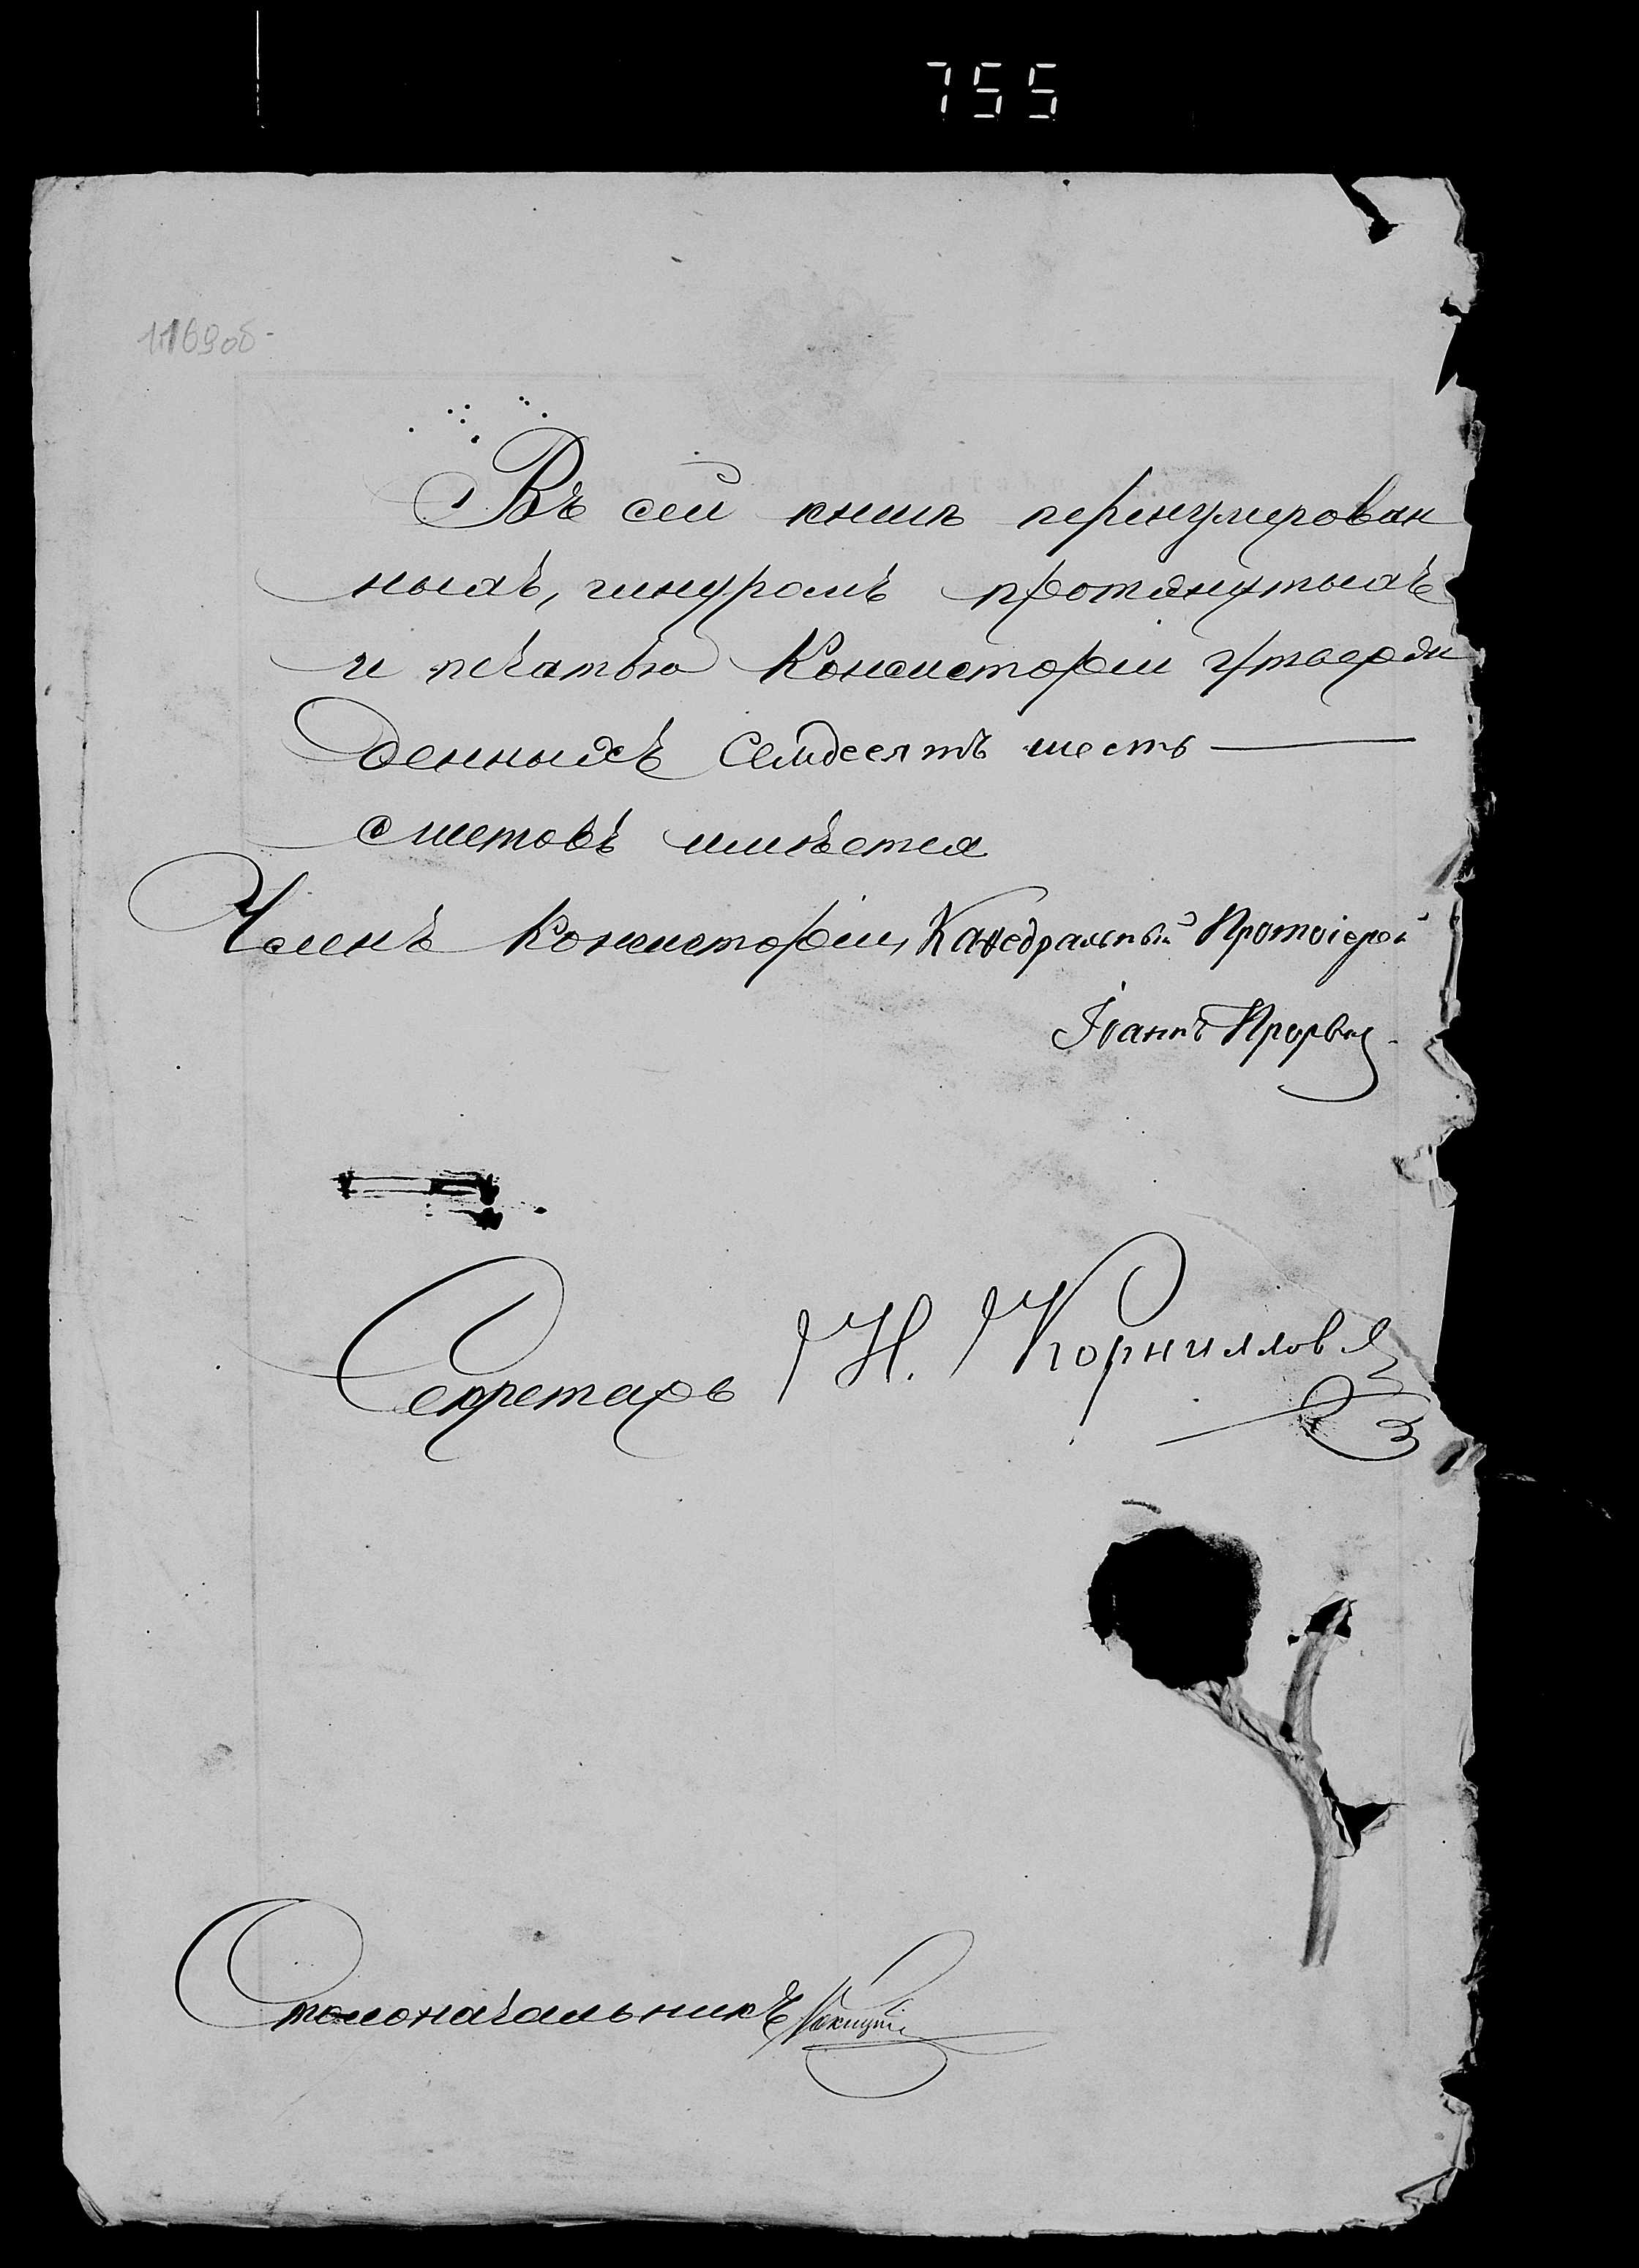 755
1169 об-
Въ сей книгѣ перенумерован
ныхъ, шнуромъ протянутыхъ
и печатью Консисторіи утверж
денныхъ Семдесятъ шесть
листовъ имѣется
Членъ Консисторіи, Каѳедральный Протоіерей
Іоаннъ
Секретарь Н. Корниллов
Столоначальникъ